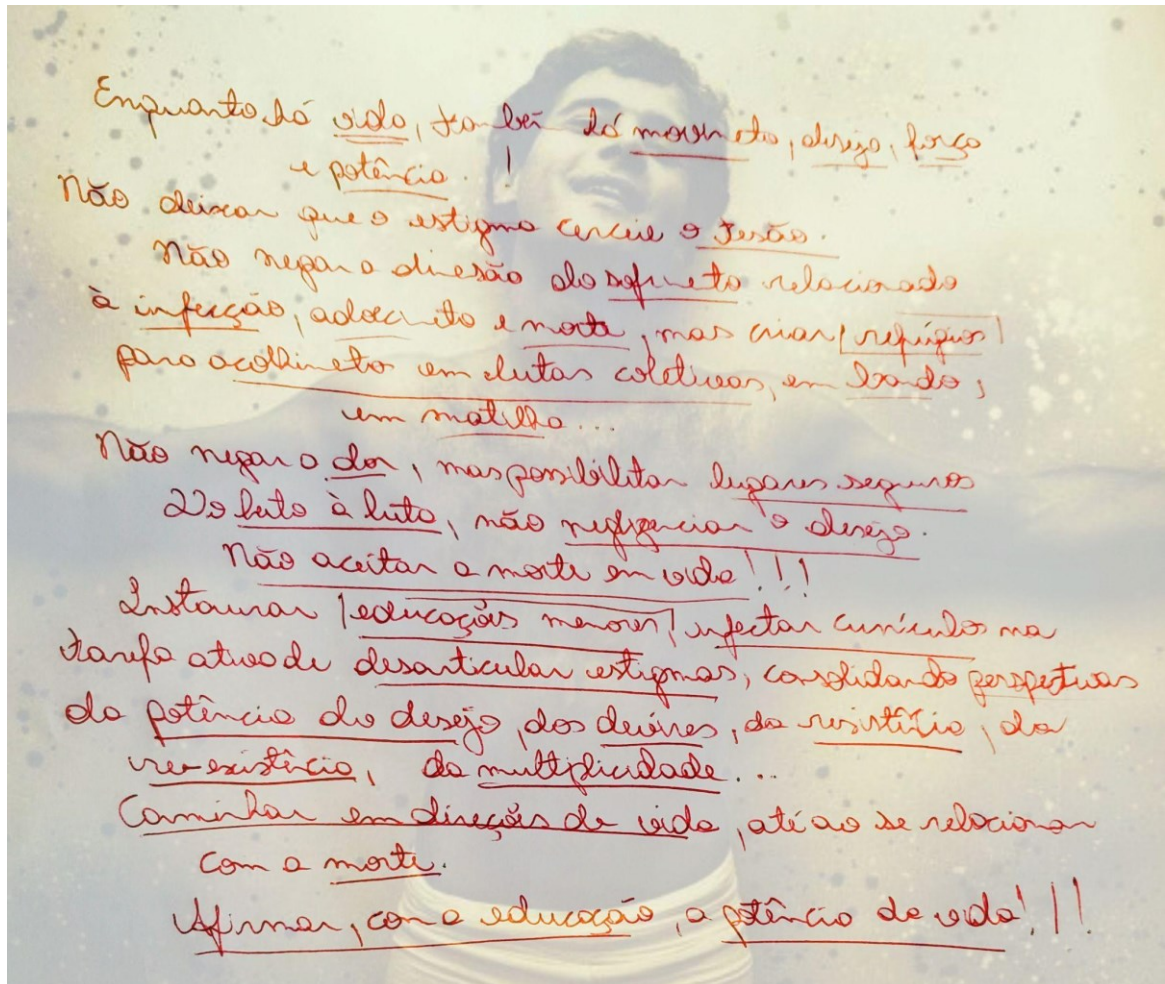 Enquanto há vida, também há movimento, desejo, força
e potência. !
Não deixar que o estigma cerceie o Tesão.
Não negar a dimensão do sofrimento relacionado
à infecção, adoecimento e morte, mas criar |refúgios|
para acolhimento em lutas coletivas, em bando,
em matilha...
Não negar a dor, mas possibilitar lugares seguros
Do luto à luta, não negligenciar o desejo.
Não aceitar a morte em vida!!!
Instaurar |educações menores| infectar currículos na
tarefa ativa de desarticular estigmas, consolidando perspectivas
da potência do desejo, dos devires, da resistência, da
re-existência, da multiplicidade...
Caminhar em direções de vida, até ao se relacionar
com a morte.
Afirmar, com a educação, a potência da vida!!!